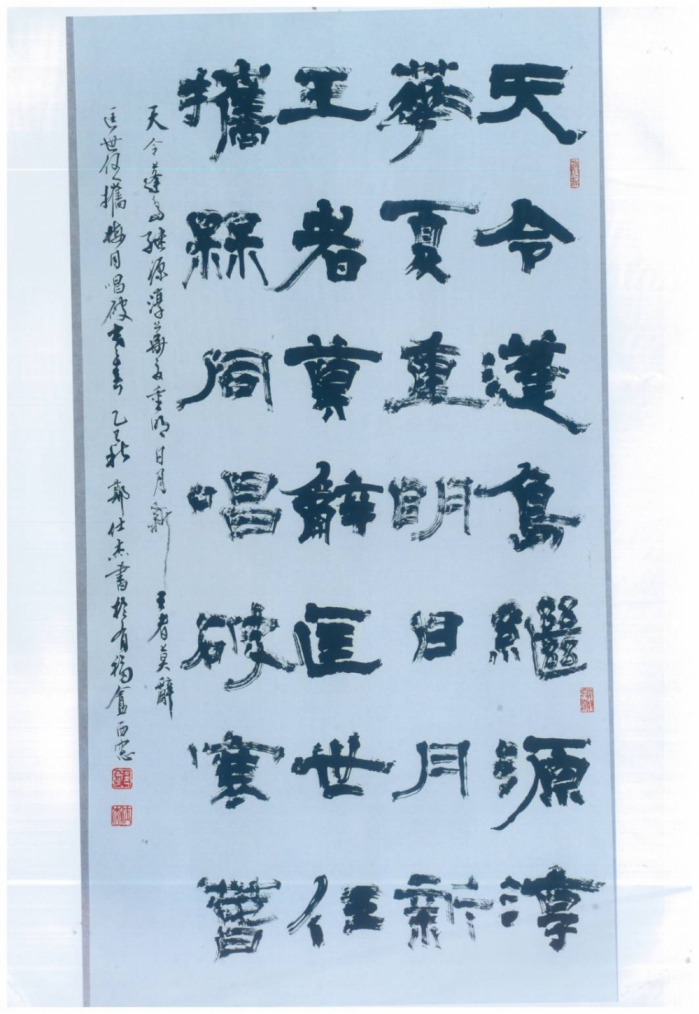 天令蓬島繼源淳
華夏重明日月新
王者莫辭匡世任
攜槑同唱破寒春
天令蓬島繼源淳華夏重明日月新王者莫辭
匡世任攜梅同唱破寒春乙秋鄭仕杰書於有福盦西窗